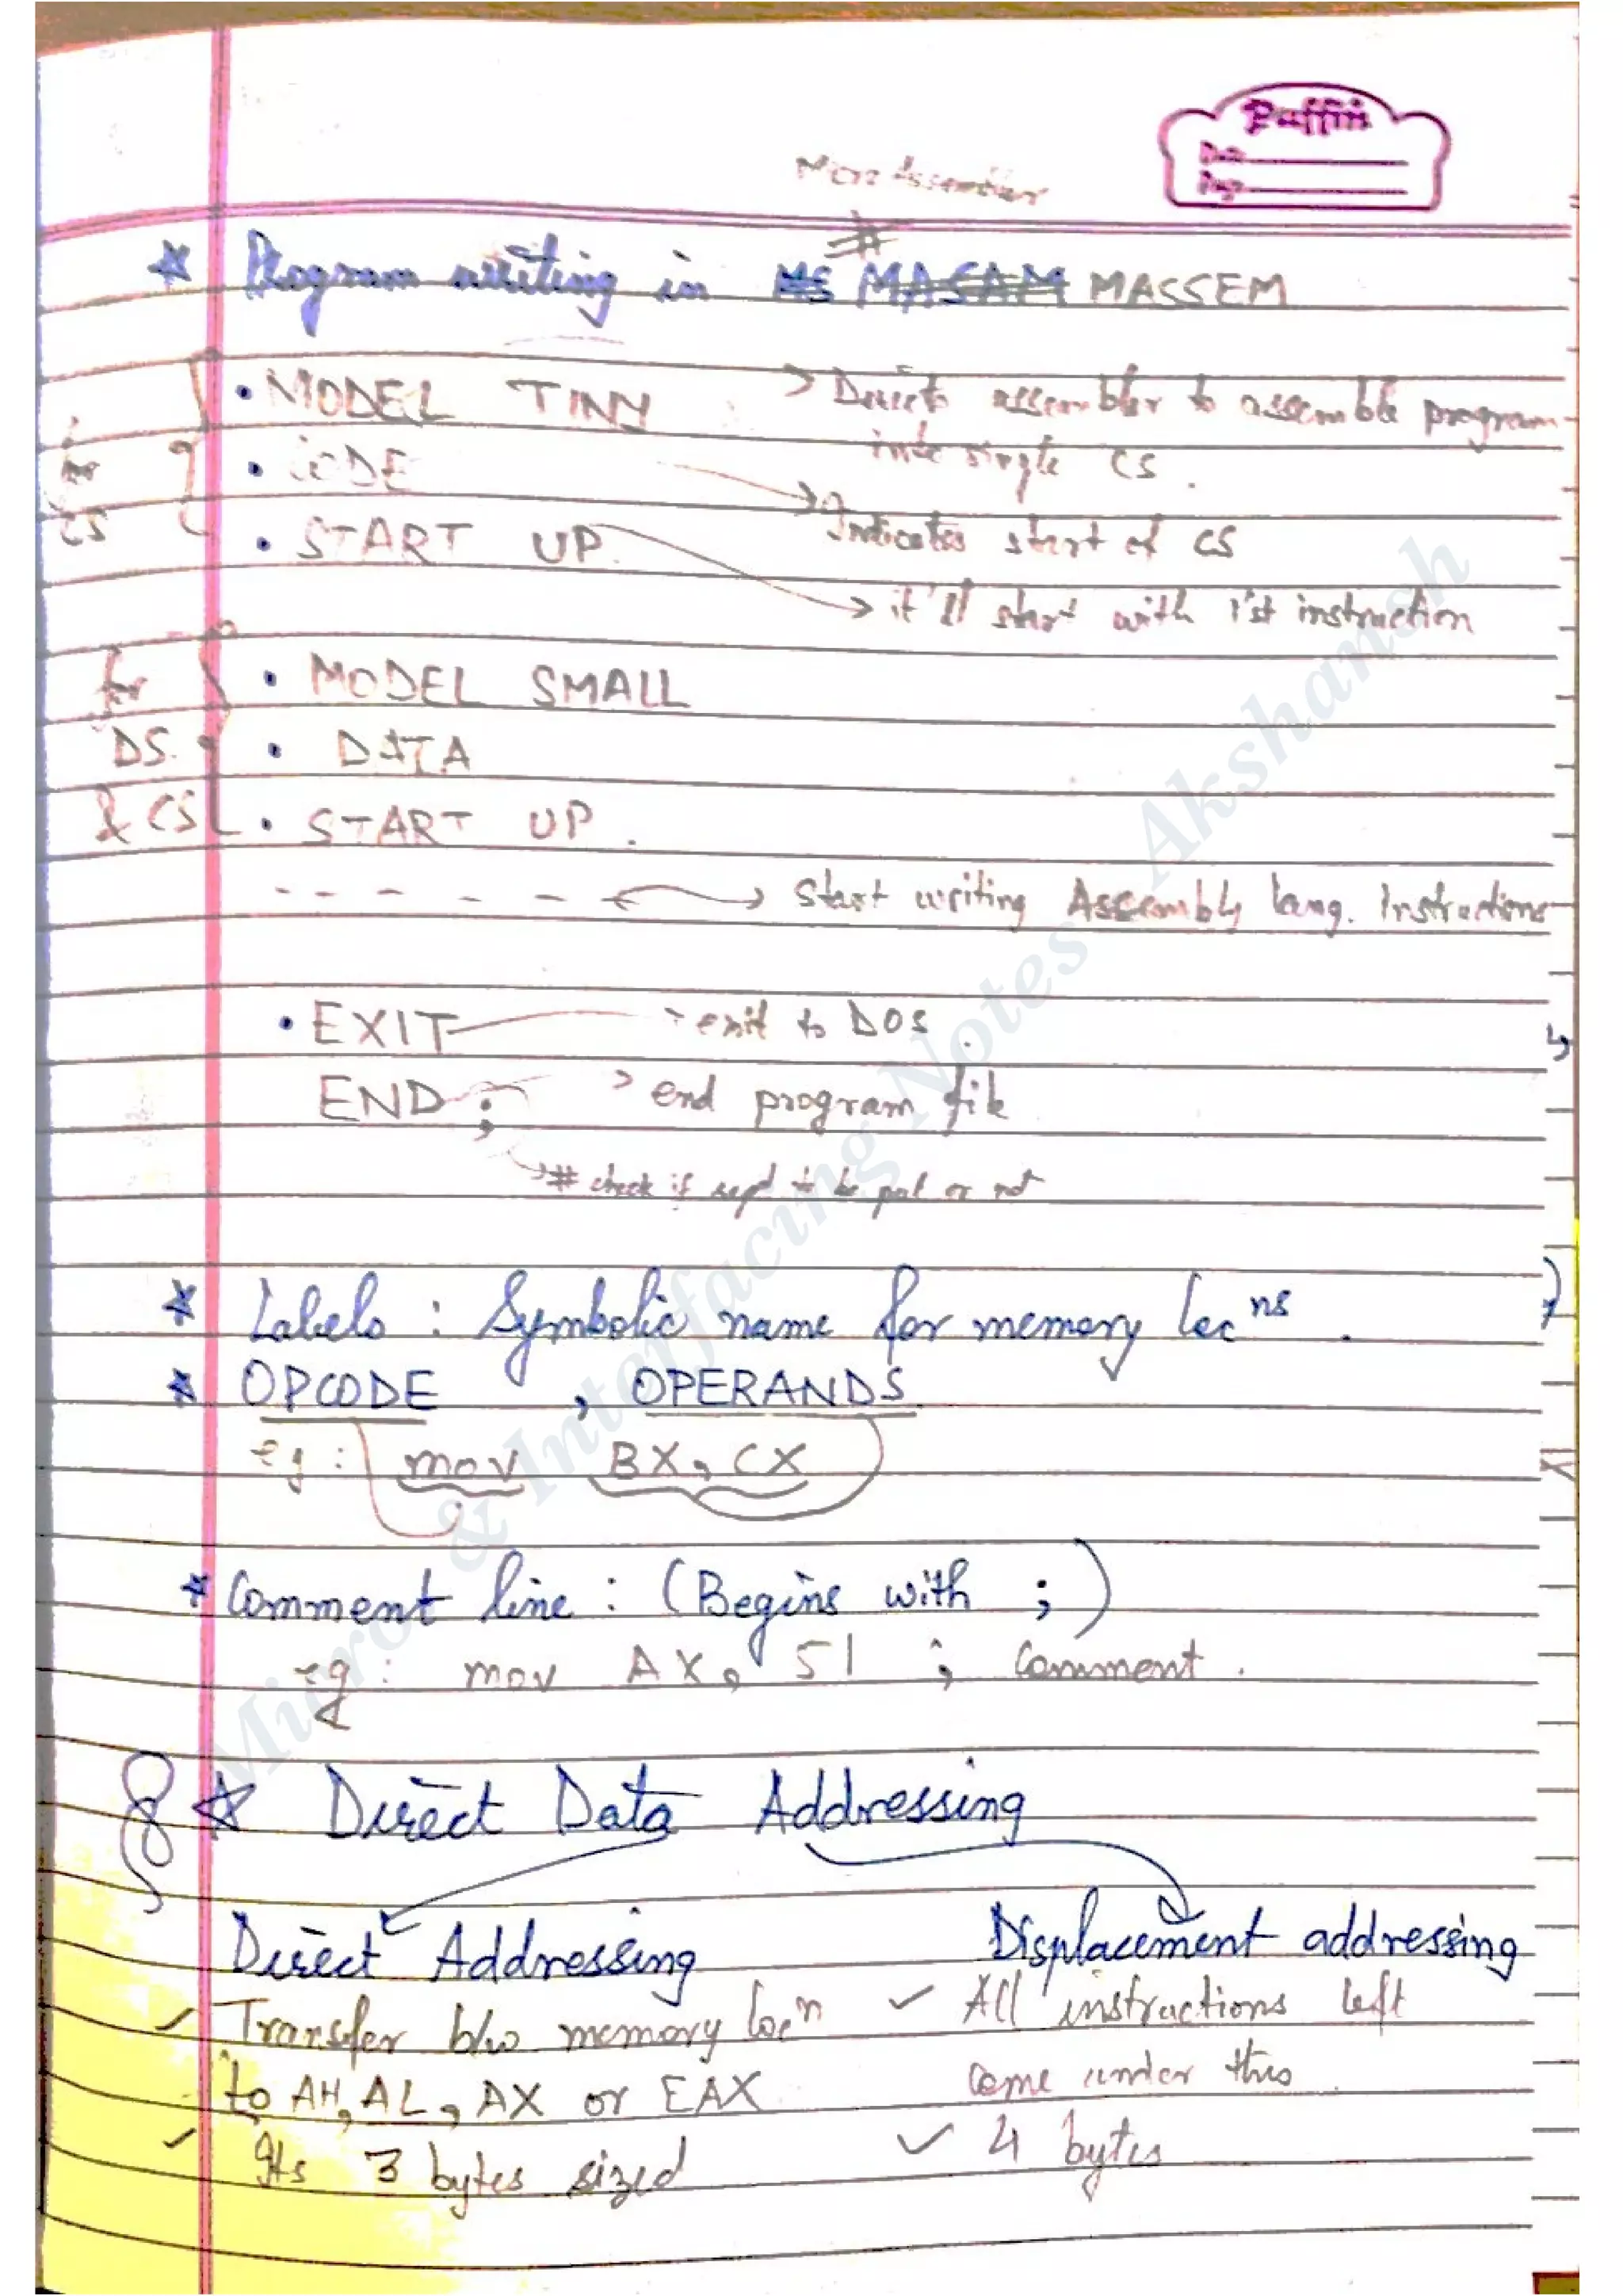 Puffin
Date
Page
* Program writing in MS MASAM MASSEM
• MODEL TINY > Directs assembler to assemble program
into single CS.
for CS
• CODE → Indicates start of CS
• START UP. → it'll start with 1'st instruction
for DS. & CS
• MODEL SMALL
• DATA
• START UP.
- - - - - - ← → Start writing Assembly lang. Instructions
• EXIT - exit to DOS.
END ; > end program file
# check if reqd to be put or not
* Labels : Symbolic name for memory locⁿˢ.
* OPCODE , OPERANDS
eg : mov BX, CX
* Comment line : (Begins with ; )
eg : mov AX, 51 ; Comment.
* Direct Data Addressing
Direct Addressing
✓ Transfer b/w memory locⁿ
to AH, AL, AX or EAX
✓ Its 3 bytes sized
Displacement addressing
✓ All instructions left
come under this.
✓ 4 bytes
Micro & Interfacing Notes - Akshansh